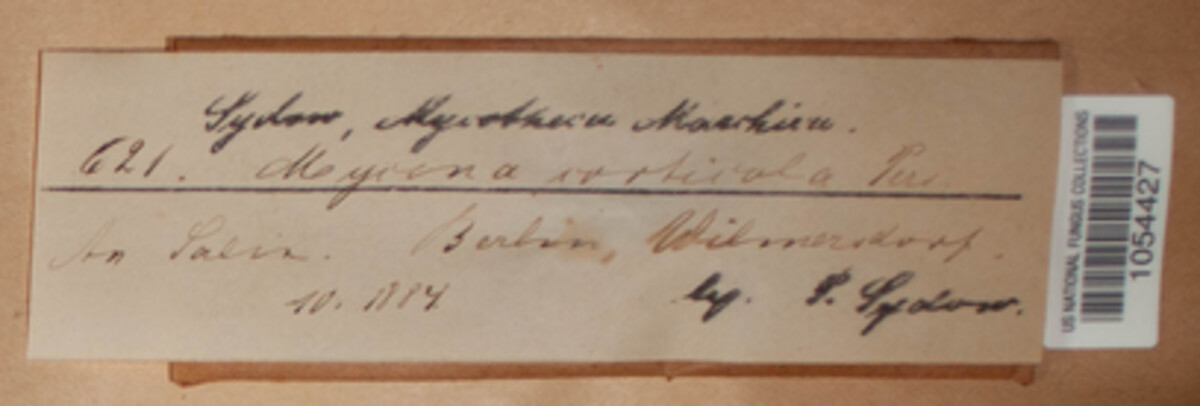 Sydow, Mycotheca Marchica.
621. Mycena corticola Pers
An Salix. Berlin, Wilmersdorf.
10. 1884
leg. P. Sydow.
US NATIONAL FUNGUS COLLECTIONS
1054427